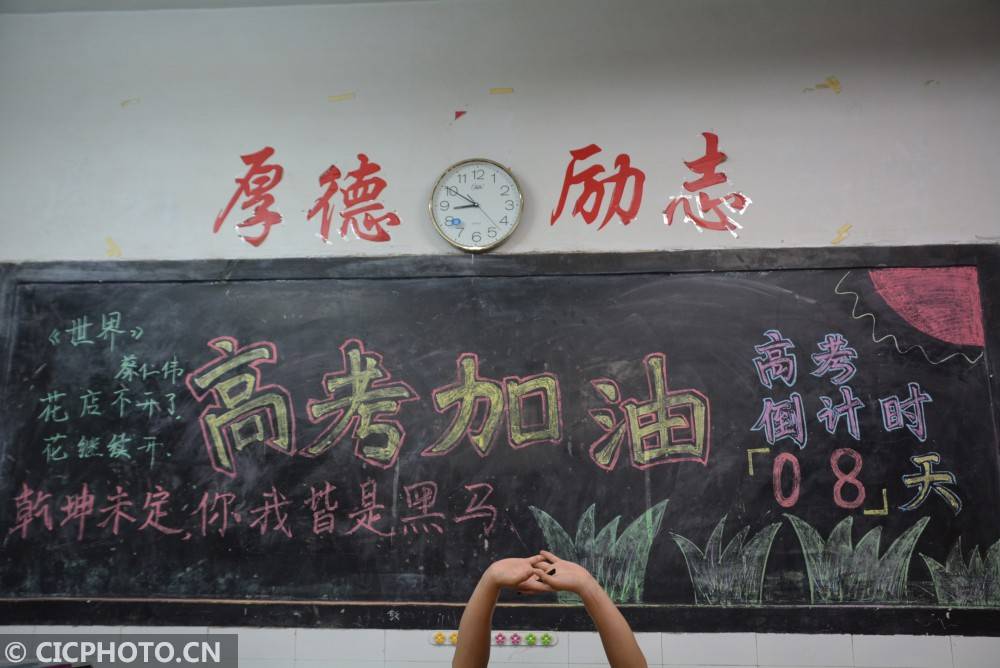 厚德 励志
12
1
2
3
4
5
6
7
8
9
10
11
《世界》
蔡仁伟
花店不开了
花继续开.
高考加油
高考
倒计时
「08」天
乾坤未定,你我皆是黑马
© CICPHOTO.CN